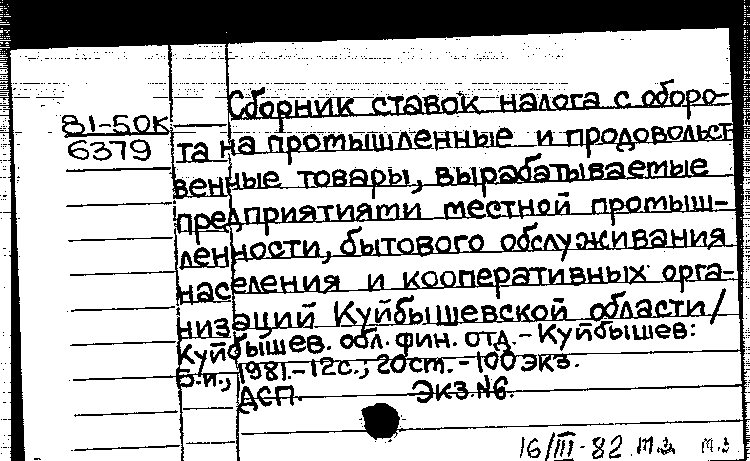 81-50К
6379
Сборник ставок налога с оборо-
та на промышленные и продовольст
венные товары, вырабатываемые
предприятиями местной промыш-
ленности, бытового обслуживания
населения и кооперативных орга-
низаций Куйбышевской области/
Куйбышев. обл. фин. отд. - Куйбышев:
Б.и., 1981. - 12с.; 20ст. - 100 экз.
ДСП. Экз. №6.
16/III-82 т.з. т.з